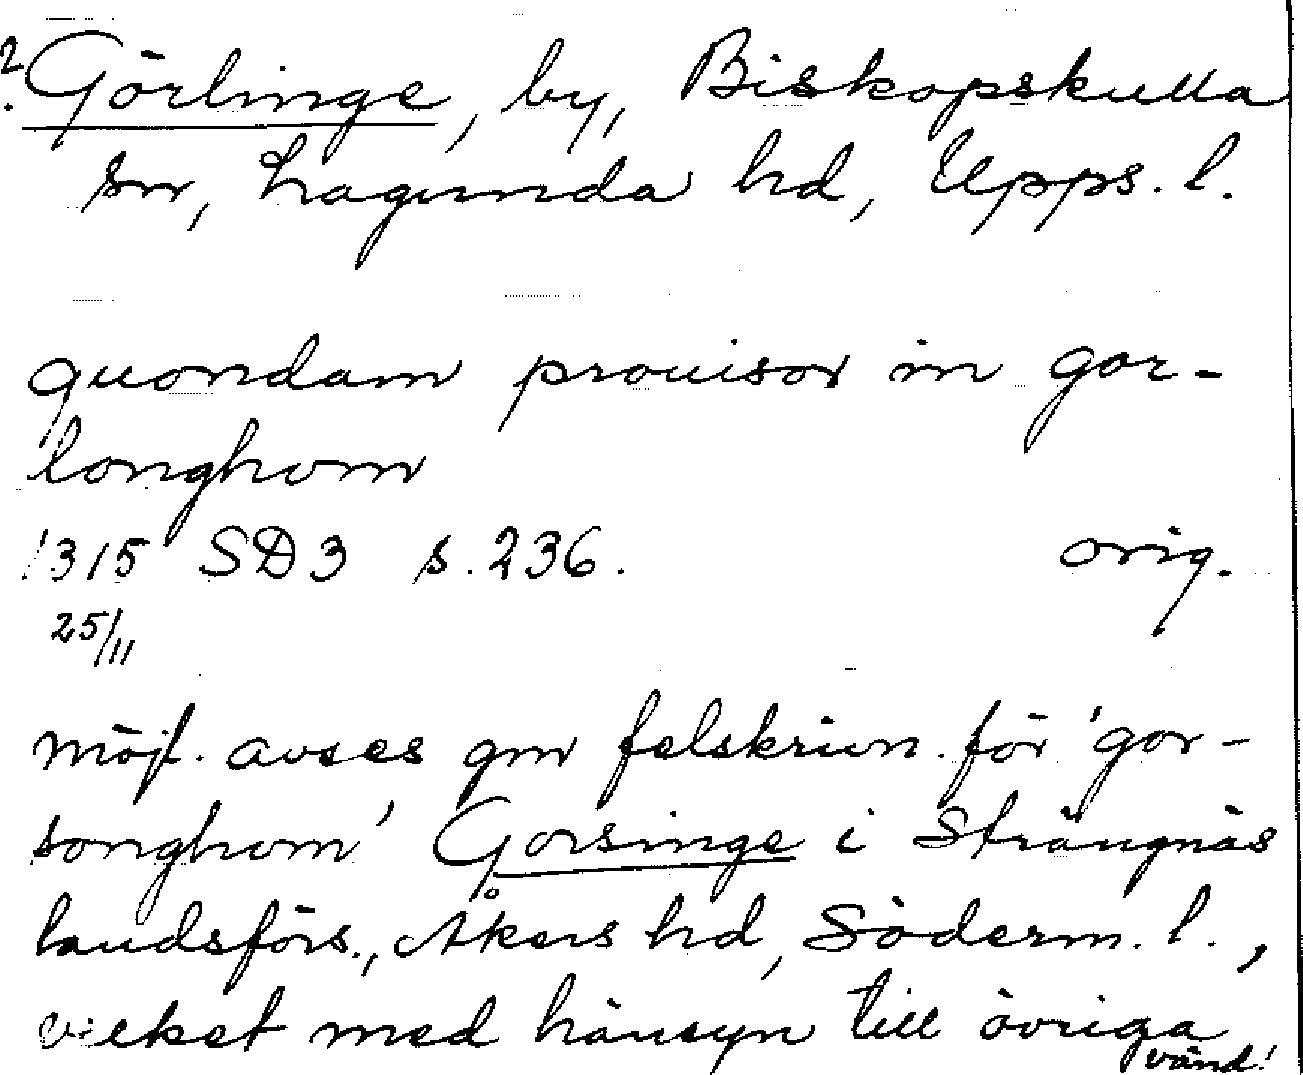 ?. Görlinge, by, Biskopskulla
sn, Lagunda hd, Upps. l.
quondam prouisor in gor-
longhom
1315 SD3 s. 236. orig.
25/11
möjl. avses gm felskrivn. för 'gor-
songhom' Gorsinge i Strängnäs
landsförs., Åkers hd, Söderm. l.,
vilket med hänsyn till övriga
vänd!